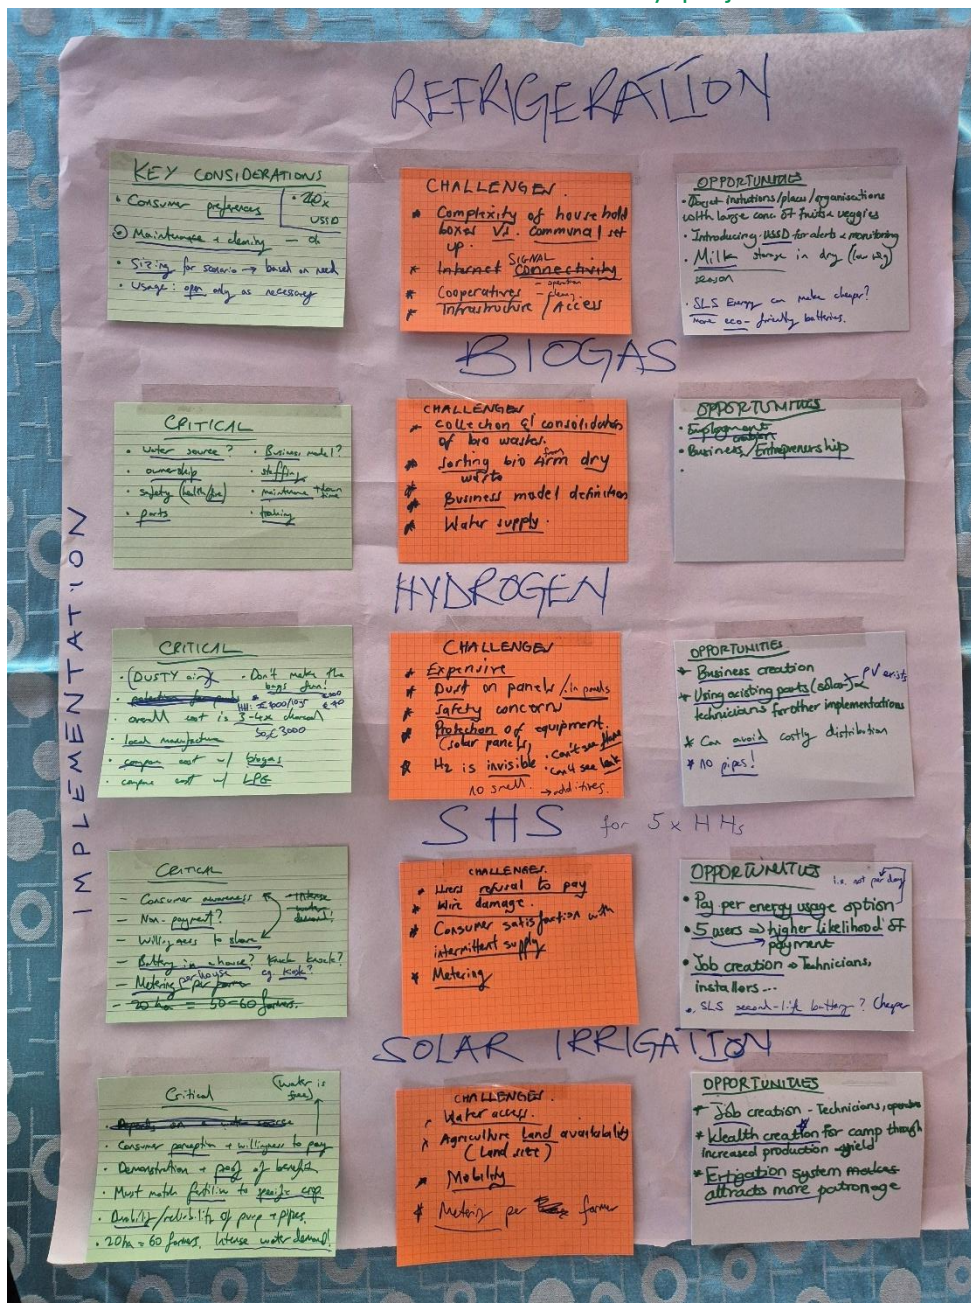 REFRIGERATION
KEY CONSIDERATIONS
• Consumer preferences
• Maintenance + cleaning
• Sizing for scenario → based on need
• Usage: open only as necessary
USSD
CHALLENGES.
* Complexity of household
boxes Vs. Communal set
up.
SIGNAL
* Internet Connectivity
* Cooperatives
* Infrastructure / Access
OPPORTUNITIES
institutions/places/organisations
with large conc of fruits & veggies
• Introducing USSD for alerts & monitoring
• Milk storage in dry
season
• SLS Energy can make cheaper?
more eco-friendly batteries.
BIOGAS
CRITICAL
• Water source?
• ownership
• safety
• parts
• Business model?
• staffing
• maintenance
• training
CHALLENGES
* Collection & consolidation
of bio wastes.
* Sorting bio from dry
waste
* Business model definition
* Water supply.
OPPORTUNITIES
• Employment
creation
• Business/Entrepreneurship
•
IMPLEMENTATION
HYDROGEN
CRITICAL
• (DUSTY air)
• Don't make the
bags
• overall cost is 3-4x charcoal
• local manufacture
• compare cost w/ biogas
• compare cost w/ LPG
CHALLENGES
* Expensive
* Dust on panels / in panels
* Safety concern
* Protection of equipment.
(solar panels)
* H2 is invisible
• can't see flame
• can't see leak
no smell. → additives.
OPPORTUNITIES
* Business creation
PV exists
* Using existing parts (solar) &
technicians for other implementations
* Can avoid costly distribution
* no pipes!
SHS for 5 x HHs
CRITICAL
– Consumer awareness
– Non-payment?
– Willingness to share
intense
water
demand!
– Battery in a house? Knock knock?
eg kiosk?
– Metering per farmer
per house
– 20 ha = 50-60 farmers.
CHALLENGES.
* Users refusal to pay
* Wire damage.
* Consumer satisfaction with
intermittent supply
* Metering
OPPORTUNITIES
i.e. not per day
• Pay per energy usage option
• 5 users ⇒ higher likelihood of
payment
• Job creation → Technicians,
installers...
• SLS second-life battery? Cheaper
SOLAR IRRIGATION
Critical
(water is
free)
• Consumer perception + willingness to pay
• Demonstration + proof of benefits
• Must match fertiliser to specific crop
• Durability/reliability of pump + pipes.
• 20ha = 60 farmers. Intense water demand!
CHALLENGES.
* Water access.
* Agriculture Land availability
(Land size)
* Mobility
* Metering per farmer
OPPORTUNITIES
* Job creation - Technicians, operators
* Wealth creation for camp through
increased production yield
* Fertigation system makes
attracts more patronage